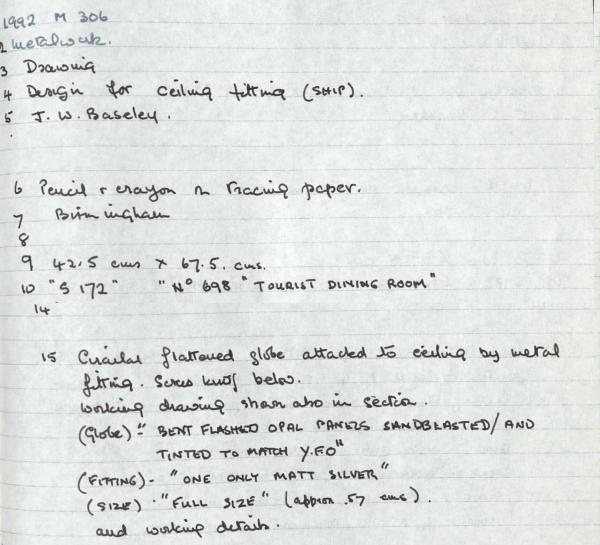 1992 M 306
2 Metalwork.
3 Drawing
4 Design for ceiling fitting (SHIP).
5 J. W. Baseley.
6 Pencil + crayon on tracing paper.
7 Birmingham
8
9 42.5 cms x 67.5. cms.
10 "S 172" "No 698 "TOURIST DINING ROOM"
14
15 Circular flattened globe attached to ceiling by metal
fitting. Screw knob below.
Working drawing shown also in section.
(Globe) - "BENT FLASHED OPAL PANELS SANDBLASTED/AND
TINTED TO MATCH Y.F.O"
(FITTING) - "ONE ONLY MATT SILVER"
(SIZE) . "FULL SIZE" (approx .57 cms).
and working details.